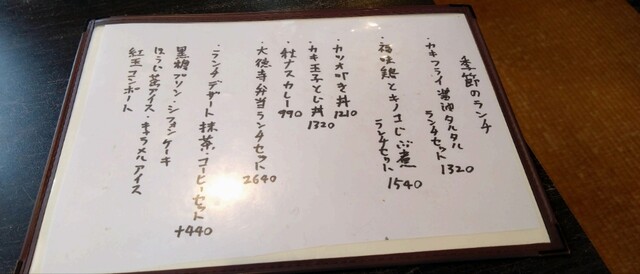 季節のランチ
・カキフライ 醤油タルタル
ランチセット 1320
・福味鶏とキノコじぶ煮
ランチセット 1540
・カツオ叩き丼 1210
・カキ玉子とじ丼 1320
・牡ナスカレー 990
・大徳寺弁当ランチセット 2640
・ランチデザート 抹茶・コーヒーセット +440
黒糖プリン・シフォンケーキ
ほうじ茶アイス・キャラメルアイス
紅玉コンポート